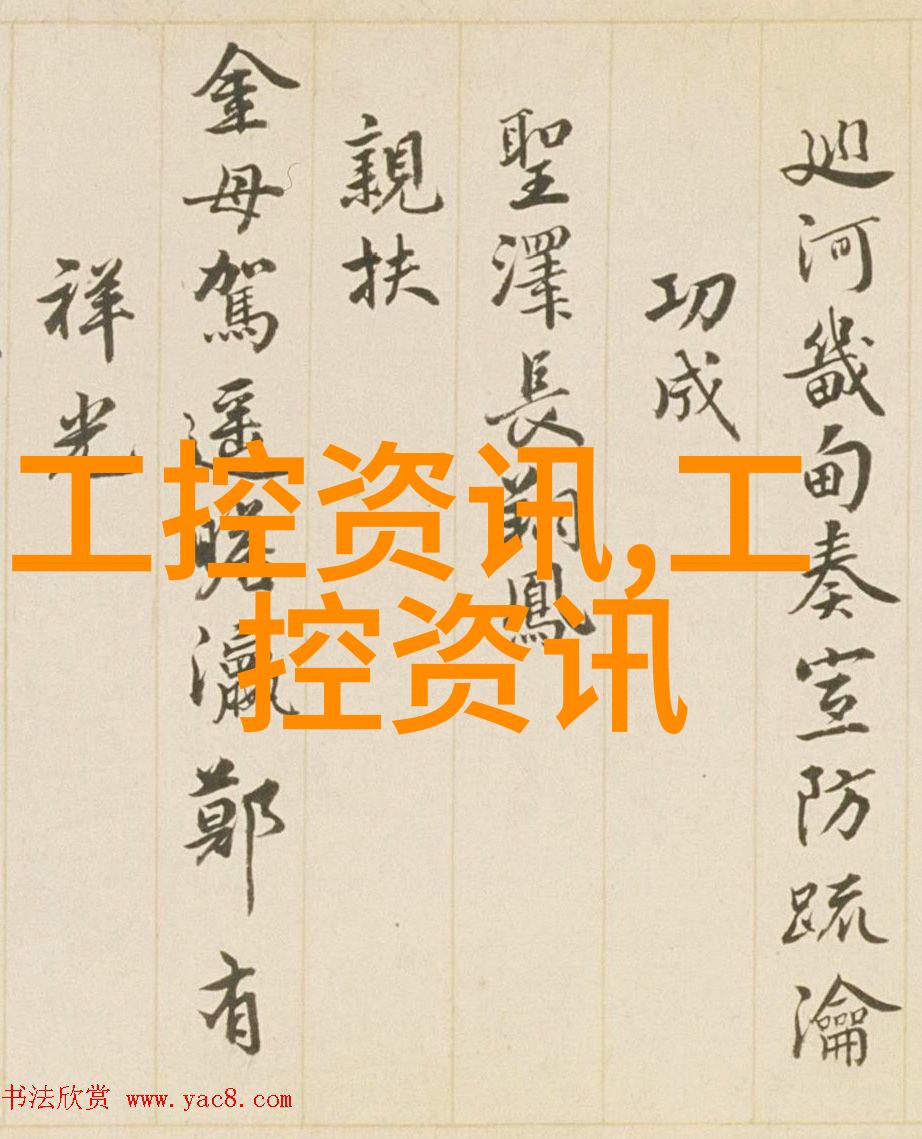 廵河畿甸奏宣防疏瀹
功成
聖澤長翔鳳
親扶
金母駕遥瞻瀛鄭有
祥光
工控资讯,工
控资讯
书法欣赏 www.yac8.com